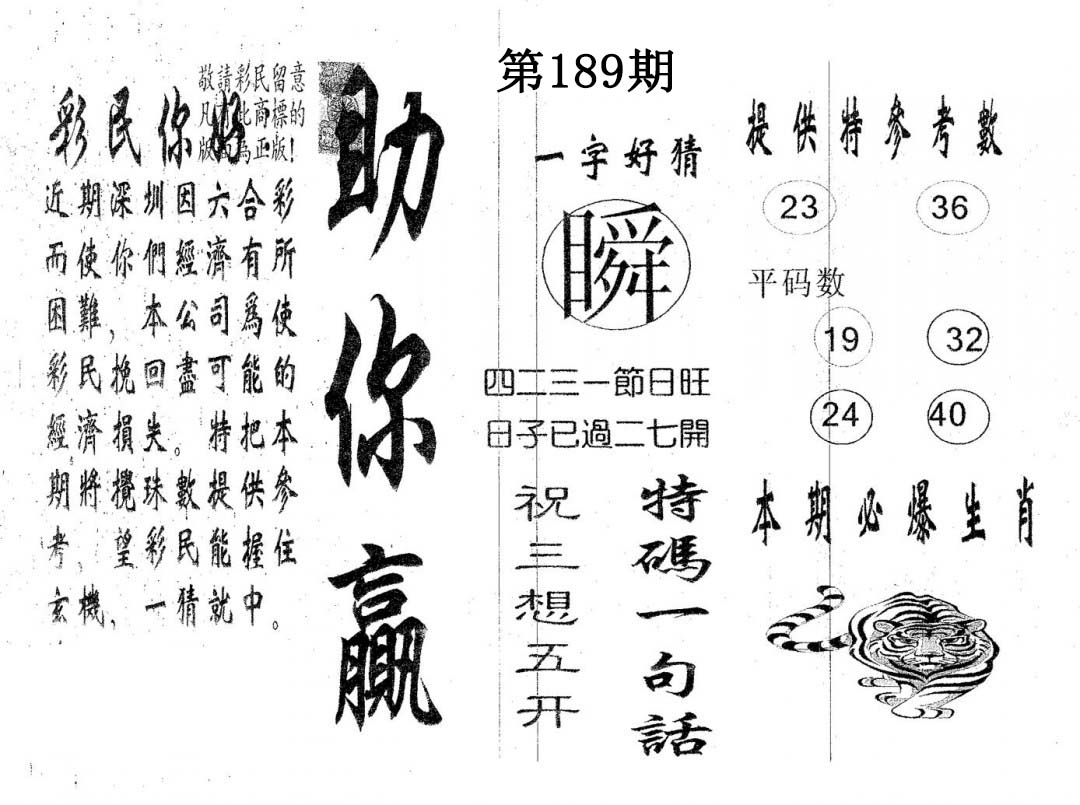 第189期
敬請彩民留意
凡 此商標的
版 為正版!
彩民你好
近期深圳因六合彩
而使你們經濟有所
困難,本公司爲使
彩民挽回盡可能的
經濟損失。特把本
期將攪珠數提供參
考,望彩民能握住
玄機,一猜就中。
助你贏
一字好猜
瞬
四二三一節日旺
日子已過二七開
祝三想五开
特碼一句話
提供特參考數
23 36
平码数
19 32
24 40
本期必爆生肖